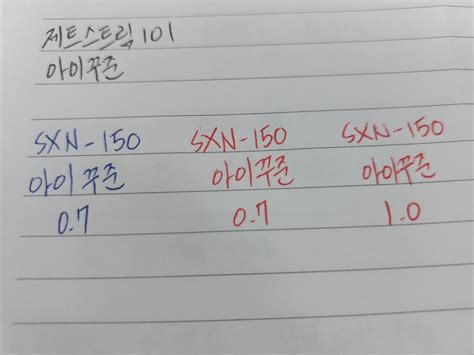 제트스트림 101
아이꾸준
SXN-150 SXN-150 SXN-150
아이꾸준 아이꾸준 아이꾸준
0.7 0.7 1.0